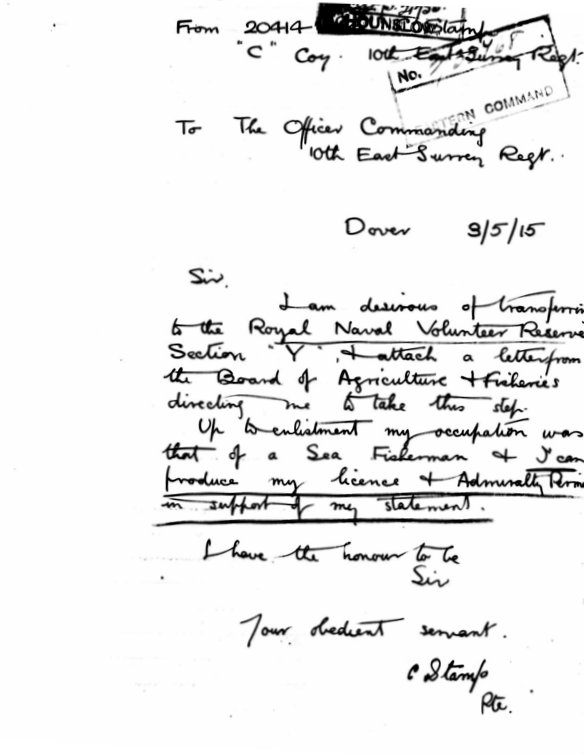 From 20414 Stamp
HOUNSLOW
"C" Coy. 10th East Surrey Regt.
No.
EASTERN COMMAND
To The Officer Commanding
10th East Surrey Regt.
Dover 9/5/15
Sir.
I am desirous of transferrin
to the Royal Naval Volunteer Reserve
Section "Y", & attach a letter from
the Board of Agriculture & Fisheries
directing me to take this step.
Up to enlistment my occupation was
that of a Sea Fisherman & I can
produce my licence & Admiralty Perm
in support of my statement.
I have the honour to be
Sir
Your obedient servant.
C Stamp
Pte.